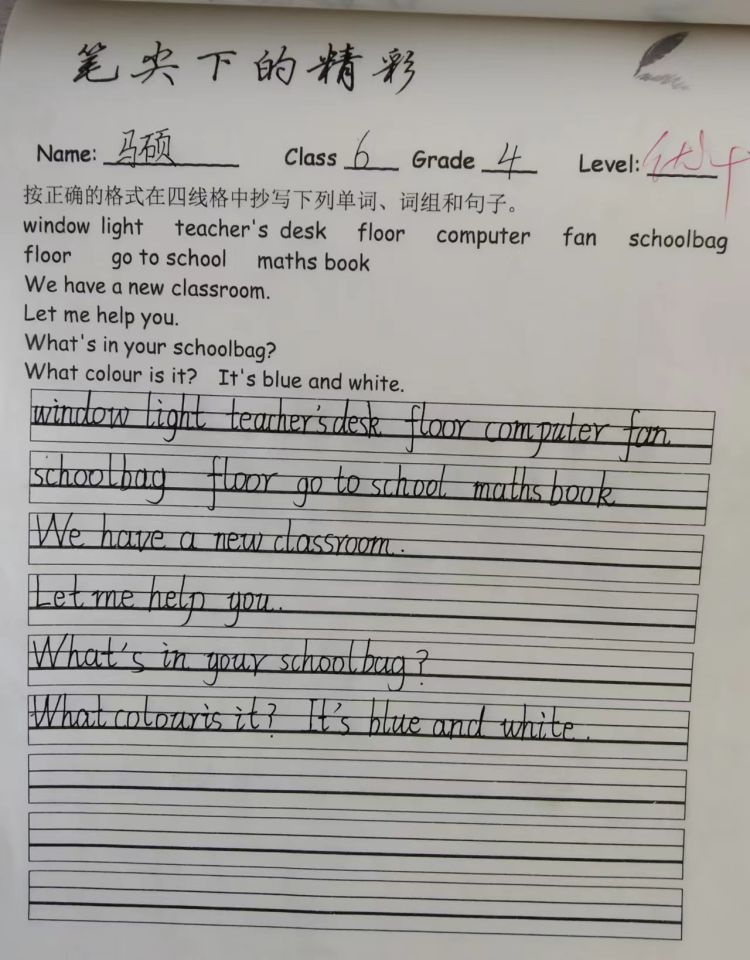 笔尖下的精彩
Name: 马硕 Class 6 Grade 4 Level: 优+
按正确的格式在四线格中抄写下列单词、词组和句子。
window light teacher's desk floor computer fan schoolbag
floor go to school maths book
We have a new classroom.
Let me help you.
What's in your schoolbag?
What colour is it? It's blue and white.
window light teacher's desk floor computer fan
schoolbag floor go to school maths book
We have a new classroom.
Let me help you.
What's in your schoolbag?
What colour is it? It's blue and white.